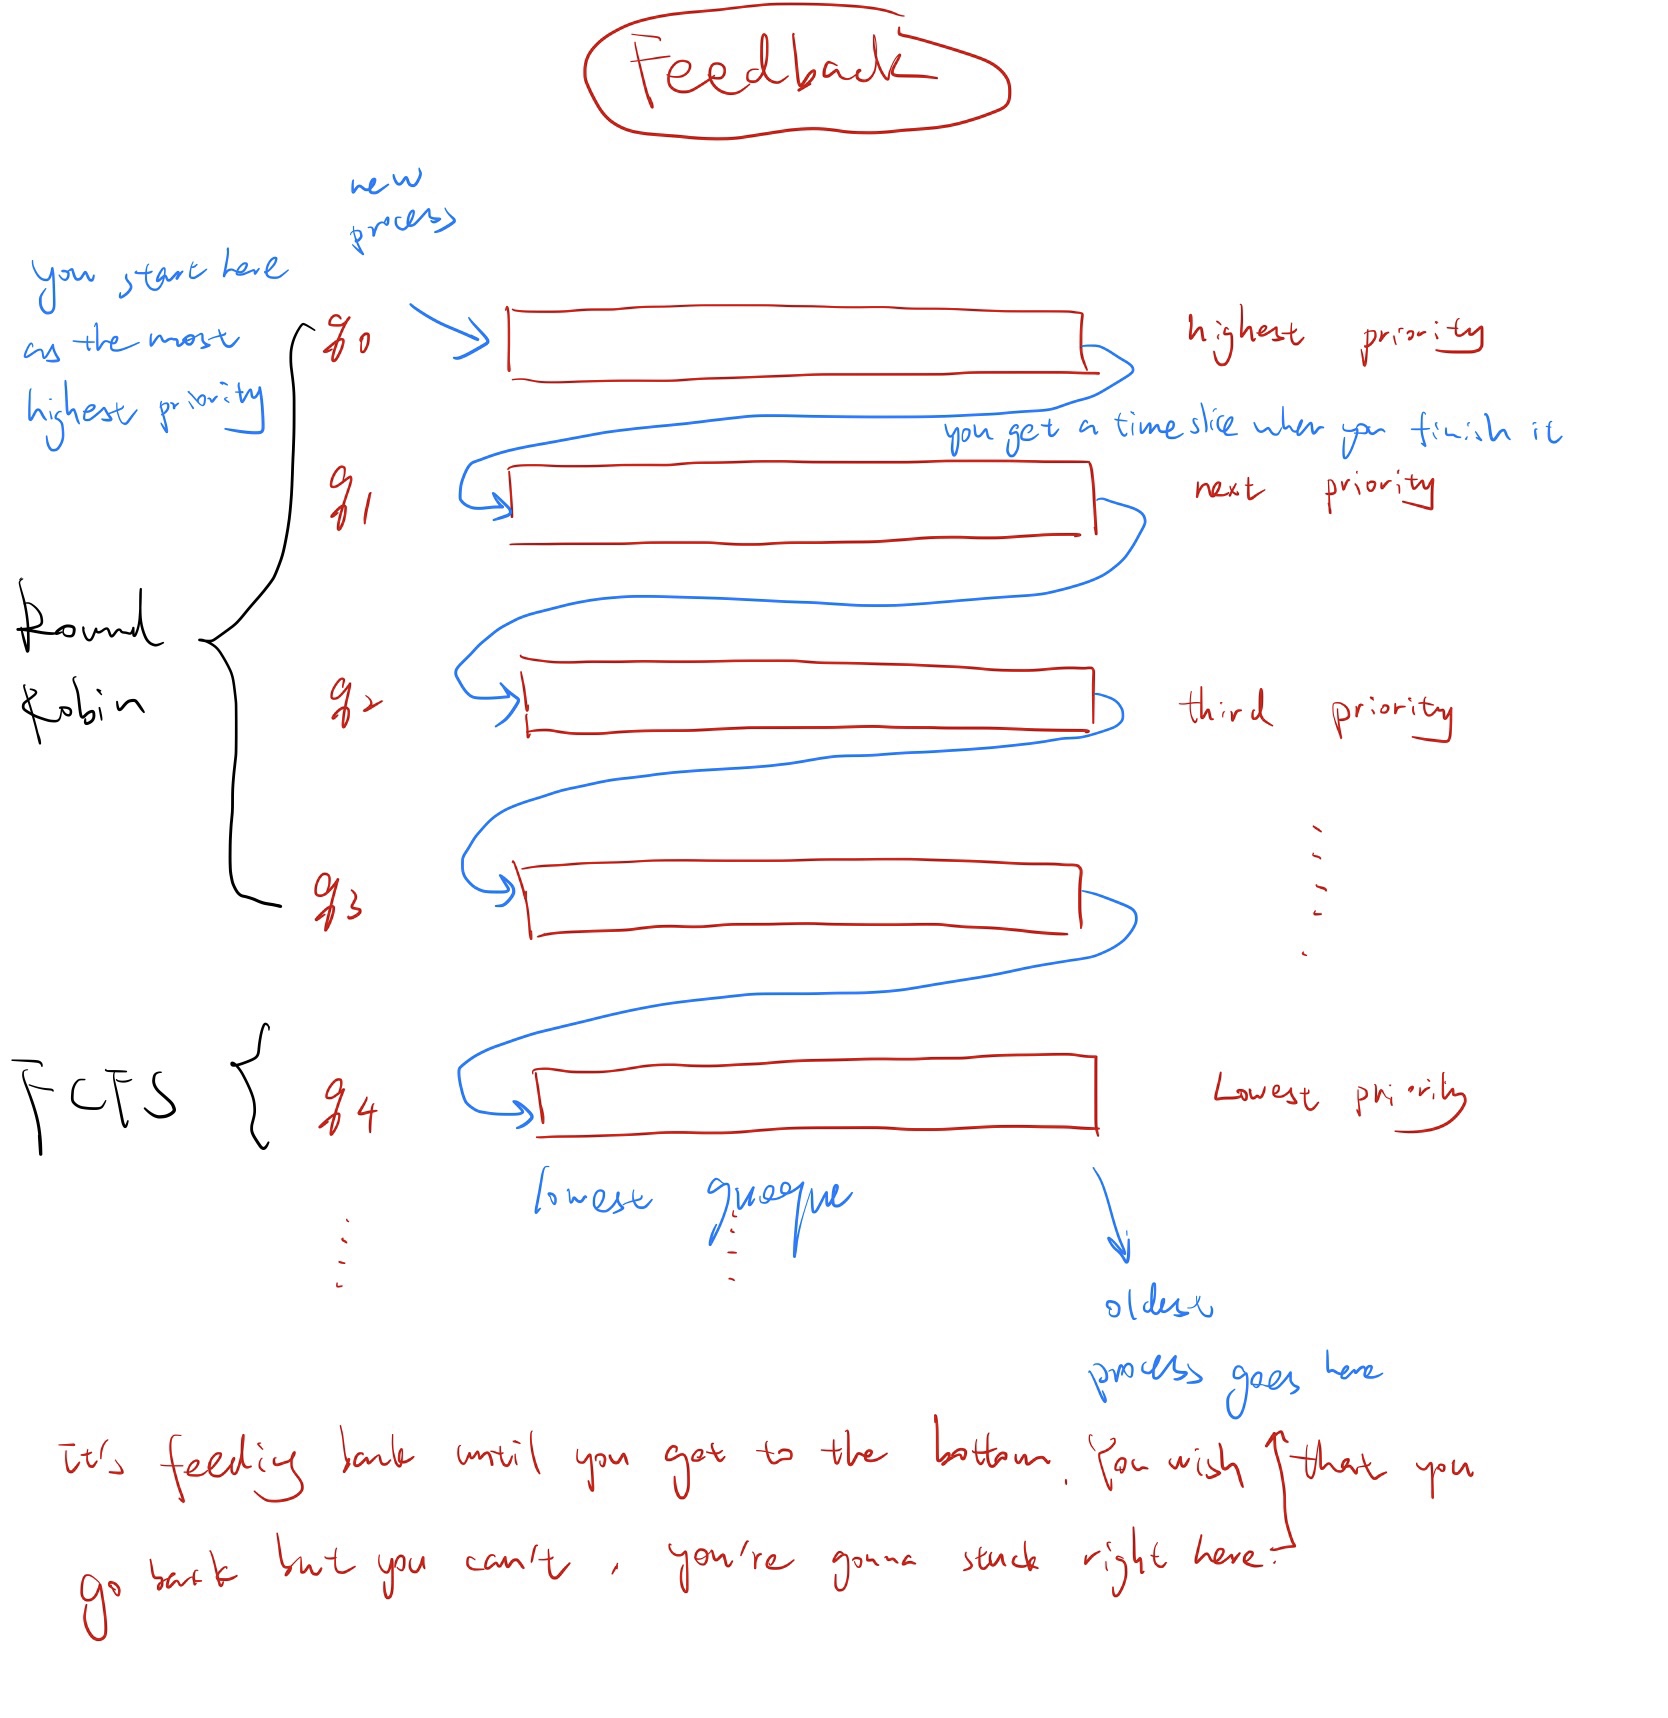 Feedback
new
process
you start here
as the most
highest priority
q0
highest priority
you get a time slice when you finish it
q1
next priority
Round
Robin
q2
third priority
q3
FCFS
q4
Lowest priority
lowest queque
oldest
process goes here
It's feeding back until you get to the bottom. You wish that you
go back but you can't, you're gonna stuck right here.